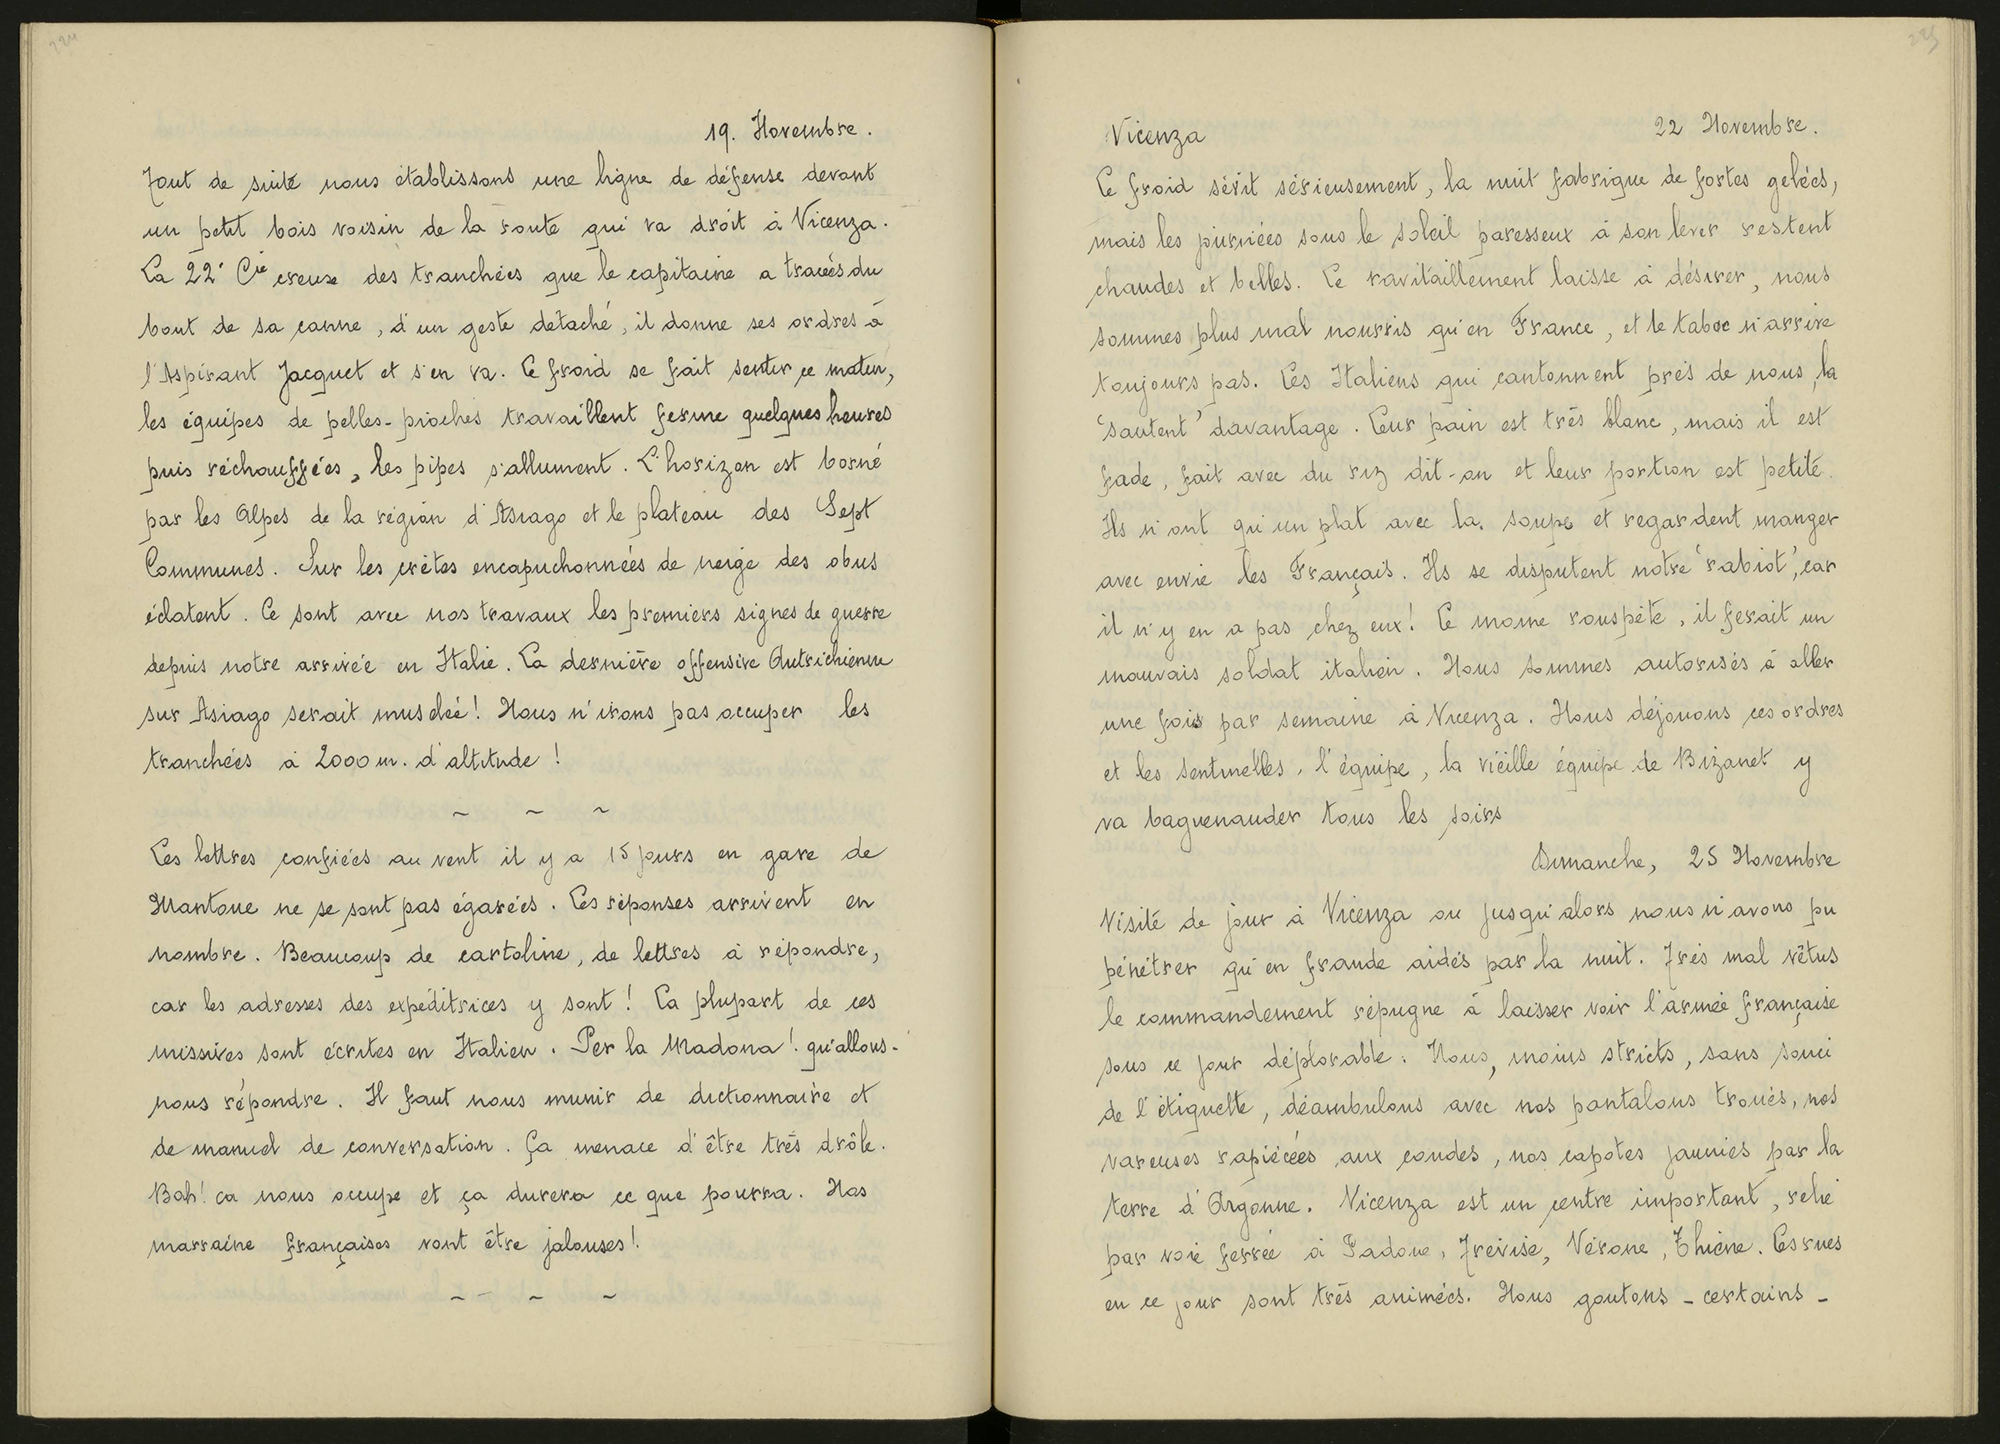 224
19. Novembre.
Tout de suite nous établissons une ligne de défense devant
un petit bois voisin de la route qui va droit à Vicenza.
La 22e Cie creuse des tranchées que le capitaine a tracés du
bout de sa canne, d'un geste détaché, il donne ses ordres à
l'Aspirant Jacquet et s'en va. Le froid se fait sentir ce matin,
les équipes de pelles-pioches travaillent ferme quelques heures
puis réchauffées, les pipes s'allument. L'horizon est borné
par les Alpes de la région d'Asiago et le plateau des Sept
Communes. Sur les crêtes encapuchonnées de neige des obus
éclatent. Ce sont avec nos travaux les premiers signes de guerre
depuis notre arrivée en Italie. La dernière offensive Autrichienne
sur Asiago serait muselée! Nous n'irons pas occuper les
tranchées à 2000 m. d'altitude!
~ ~ ~
Les lettres confiées au vent il y a 15 jours en gare de
Mantoue ne se sont pas égarées. Les réponses arrivent en
nombre. Beaucoup de cartoline, de lettres à répondre,
car les adresses des expéditrices y sont! La plupart de ces
missives sont écrites en Italien. Per la Madona! qu'allons-
nous répondre. Il faut nous munir de dictionnaire et
de manuel de conversation. Ça menace d'être très drôle.
Bah! ca nous occupe et ça durera ce que pourra. Nos
marraine françaises vont être jalouses!
~ - ~ ~
225
Vicenza 22 Novembre.
Le froid sévit sérieusement, la nuit fabrique de fortes gelées,
mais les journées sous le soleil paresseux à son lever restent
chaudes et belles. Le ravitaillement laisse à désirer, nous
sommes plus mal nourris qu'en France, et le tabac n'arrive
toujours pas. Les Italiens qui cantonnent près de nous, la
'sautent' davantage. Leur pain est très blanc, mais il est
fade, fait avec du riz dit-on et leur portion est petite.
Ils n'ont qu'un plat avec la soupe et regardent manger
avec envie les Français. Ils se disputent notre 'rabiot', car
il n'y en a pas chez eux! Le moine rouspète, il ferait un
mauvais soldat italien. Nous sommes autorisés à aller
une fois par semaine à Vicenza. Nous déjouons ces ordres
et les sentinelles, l'équipe, la vieille équipe de Bizanet y
va baguenauder tous les soirs
Dimanche, 25 Novembre
Visite de jour à Vicenza ou jusqu'alors nous n'avons pu
pénétrer qu'en fraude aidés par la nuit. Très mal vêtus
le commandement répugne à laisser voir l'armée française
sous ce jour déplorable. Nous, moins stricts, sans souci
de l'étiquette, déambulons avec nos pantalons troués, nos
vareuses rapiécées aux coudes, nos capotes jaunies par la
terre d'Argonne. Vicenza est un centre important, relié
par voie ferrée à Padoue, Trévise, Vérone, Thiène. Les rues
en ce jour sont très animées. Nous goutons - certains -